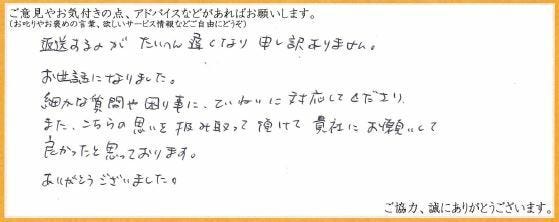 ご意見やお気付きの点、アドバイスなどがあればお願いします。
(お叱りやお褒めの言葉、欲しいサービス情報などご自由にどうぞ)
返送するのが たいへん遅くなり 申し訳ありません。
お世話になりました。
細かな質問や困り事に、ていねいに対応してくださり
また、こちらの思いを汲み取って頂けて 貴社にお願いして
良かったと思っております。
ありがとうございました。
ご協力、誠にありがとうございます。